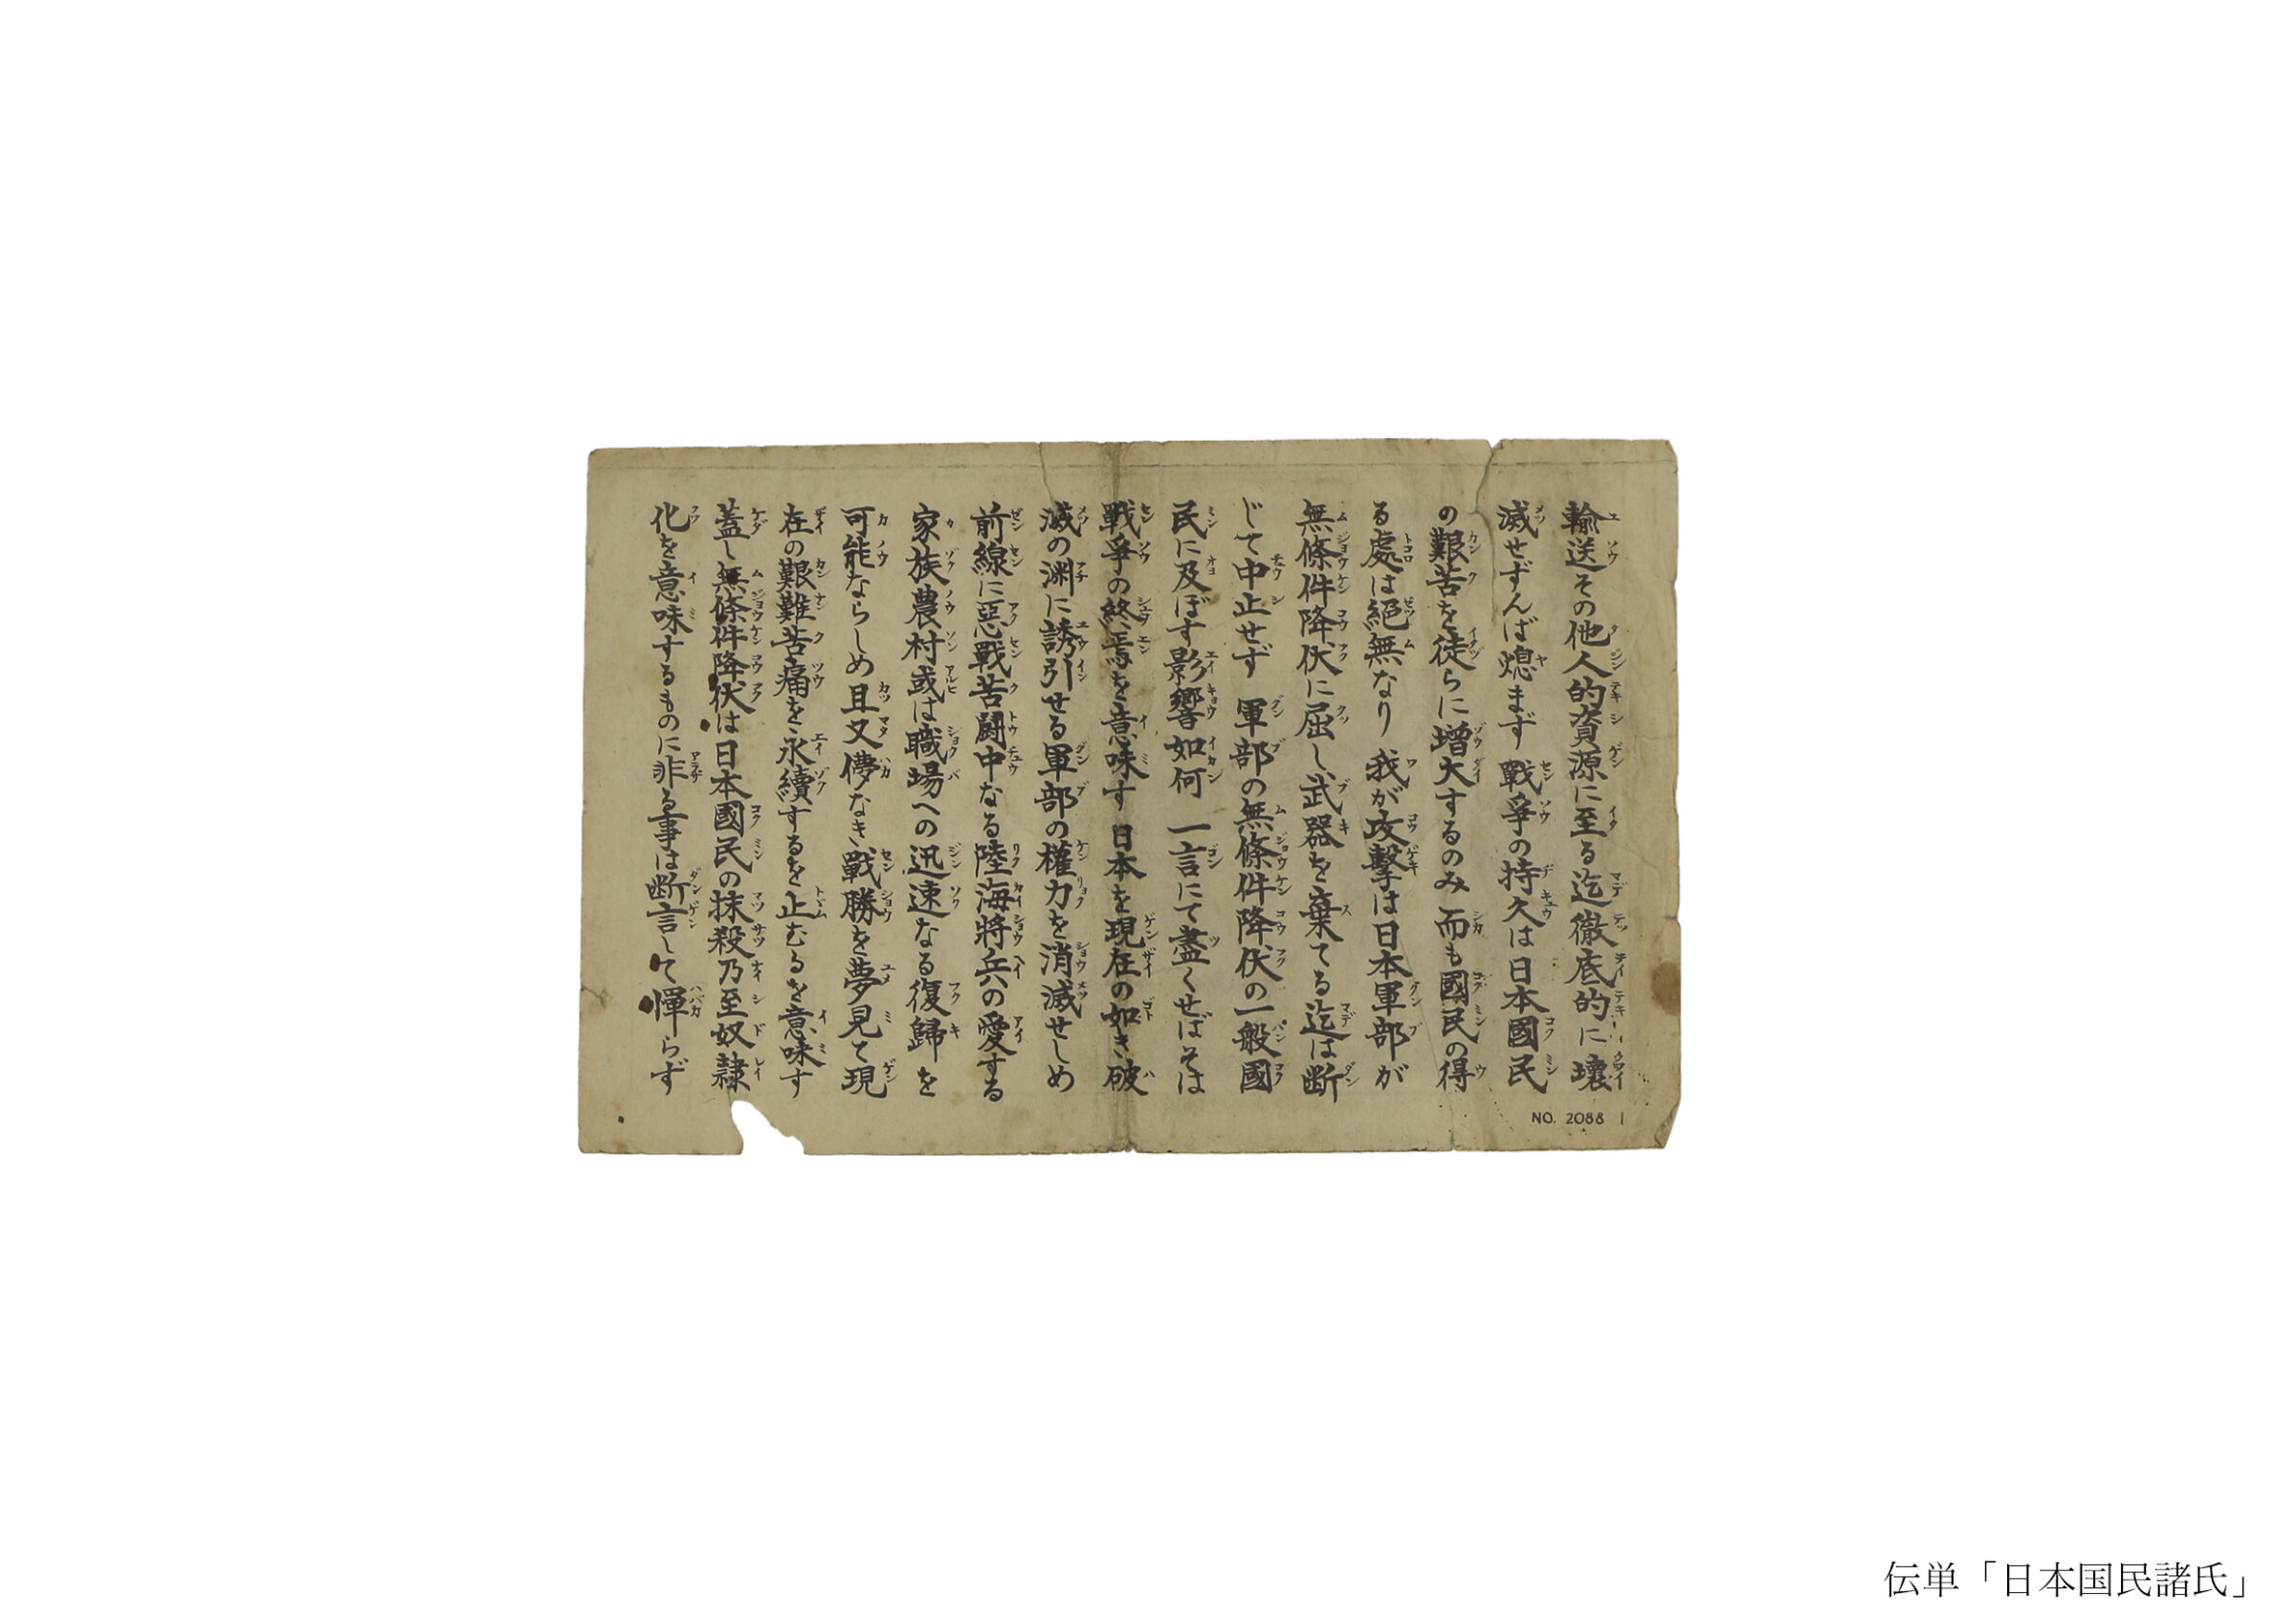 輸送その他人的資源に至る迄徹底的に壞
滅せずんば熄まず 戰爭の持久は日本國民
の艱苦を徒らに增大するのみ 而も國民の得
る處は絕無なり 我が攻擊は日本軍部が
無條件降伏に屈し武器を棄てる迄は断
じて中止せず 軍部の無條件降伏の一般國
民に及ぼす影響如何 一言にて盡くせばそは
戰爭の終焉を意味す 日本を現在の如き破
滅の渊に誘引せる軍部の權力を消滅せしめ
前線に惡戰苦闘中なる陸海將兵の愛する
家族農村或は職場への迅速なる復歸を
可能ならしめ且又儚なき戰勝を夢見て現
在の艱難苦痛を永續するを止むるを意味す
蓋し無條件降伏は日本國民の抹殺乃至奴隷
化を意味するものに非る事は断言して憚らず
NO. 2088
伝単「日本国民諸氏」